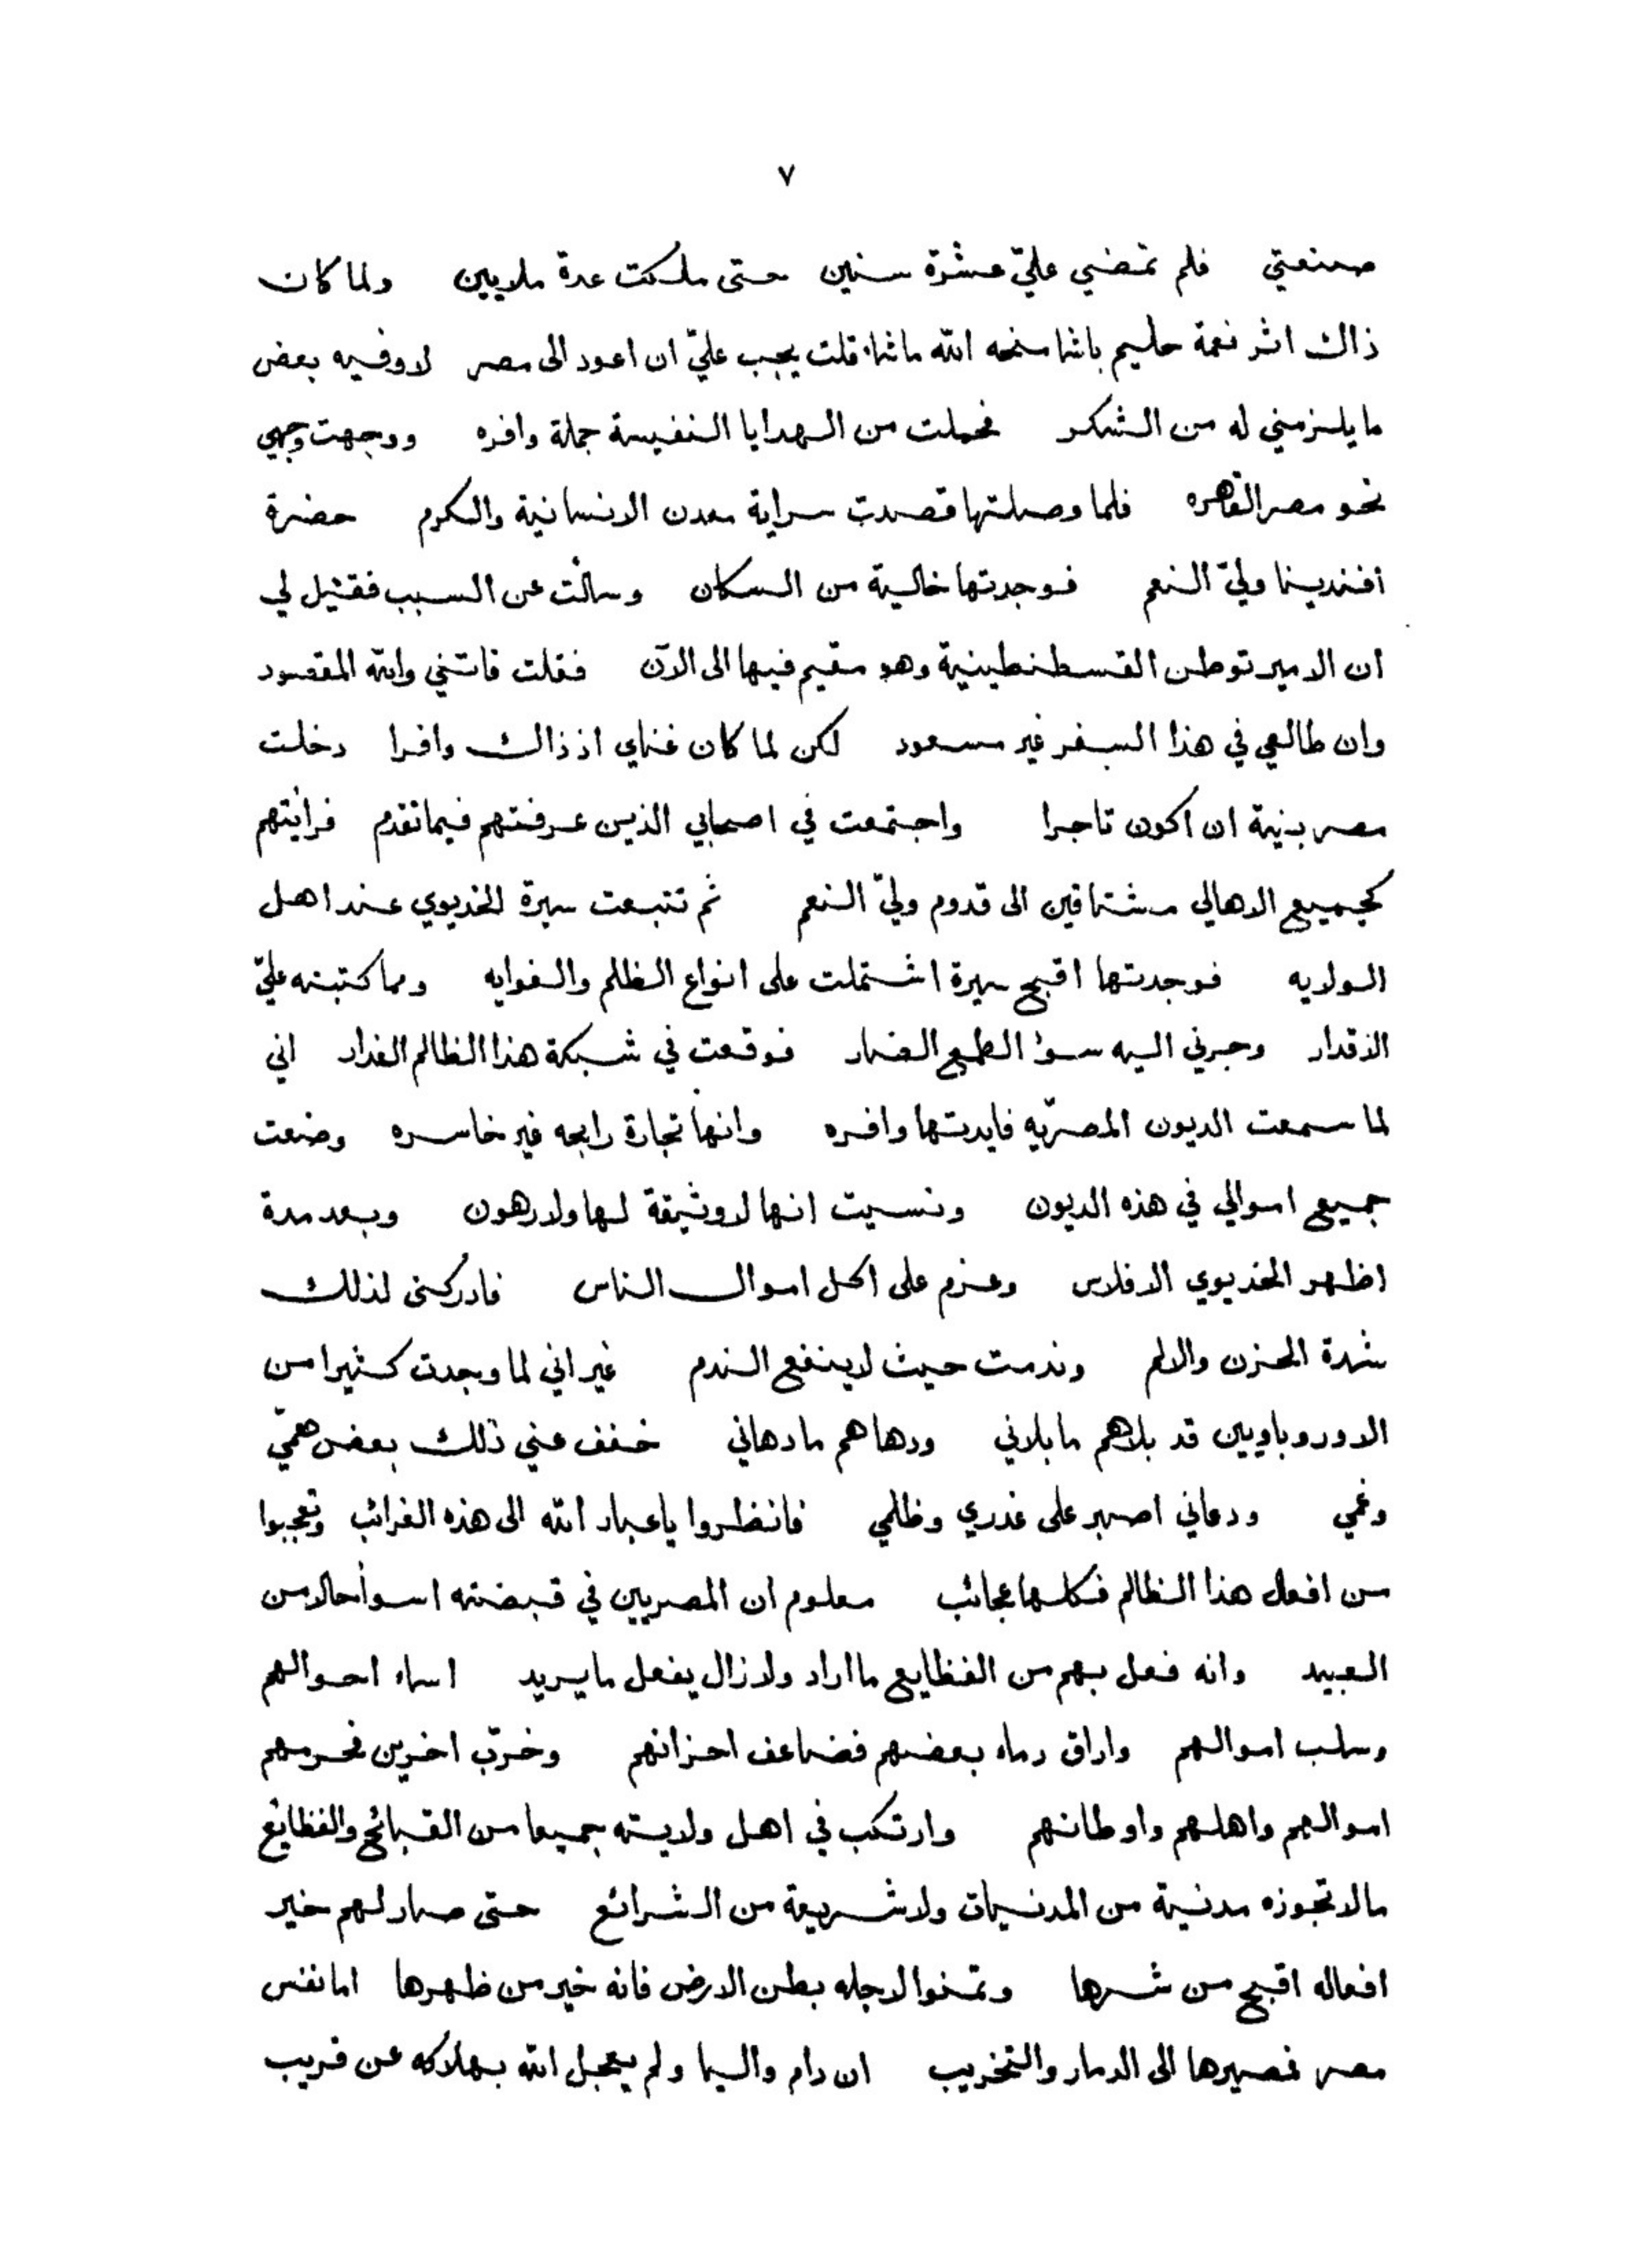 ٧
صنعتي فلم تمضي عليّ عشرة سنين حتى ملكت عدة ملايين ولما كان
ذاك اثر نعمة حليم باشا منحه الله ماشاء قلت يجب عليّ ان اعود الى مصر لاوفيه بعض
ما يلزمني له من الشكر فحملت من الهدايا النفيسة جملة وافره ووجهت وجهي
نحو مصر القاهره فلما وصلتها قصدت سراية معدن الانسانية والكرم حضرة
افندينا وليّ النعم فوجدتها خالية من السكان وسالت عن السبب فقيل لي
ان الامير توطن القسطنطينية وهو مقيم فيها الى الآن فقلت فاتني والله المقصود
وان طالعي في هذا السفر غير مسعود لكن لما كان غناي اذ ذاك وافرا دخلت
مصر بنية ان اكون تاجرا واجتمعت في اصحابي الذين عرفتهم فيما تقدم فرائيتهم
كجميع الاهالي مشتاقين الى قدوم وليّ النعم ثم تتبعت سيرة الخديوي عند اهل
الولايه فوجدتها اقبح سيرة اشتملت على انواع الظلم والغوايه ومما كتبته عليّ
الاقدار وجرني اليه سوء الطمع الضار فوقعت في شبكة هذا الظالم الغدار اني
لما سمعت الديون المصريّه فايدتها وافره وانها تجارة رابحه غير خاسره وضعت
جميع اموالي في هذه الديون ونسيت انها لا وثيقة لها ولا رهون وبعد مدة
اظهر الخديوي الافلاس وعزم على اكل اموال الناس فادركنى لذلك
شدة الحزن والالم وندمت حيث لا ينفع الندم غير اني لما وجدت كثيرا من
الاوروباويين قد بلاهم ما بلاني ودهاهم ما دهاني خفف عني ذلك بعض همّي
وغمي ودعاني اصبر على غدري وظلمي فانظروا يا عباد الله الى هذه الغرائب وتعجبوا
من افعال هذا الظالم فكلها عجائب معلوم ان المصريين في قبضته اسوأ حالا من
العبيد وانه فعل بهم من الفظايع ما اراد ولازال يفعل ما يريد اساء احوالهم
وسلب اموالهم واراق دماء بعضهم فضاعف احزانهم وخرّب اخرين فحرمهم
اموالهم واهلهم واوطانهم وارتكب في اهل ولايته جميعا من القبائح والفظايع
مالا تجوزه مدنية من المدنيات ولا شريعة من الشرائع حتى صار لهم خير
افعاله اقبح من شرها وتمنوا لاجله بطن الارض فانه خير من ظهرها اما نفس
مصر فمصيرها الى الدمار والتخريب ان دام واليا ولم يعجل الله بهلاكه عن قريب